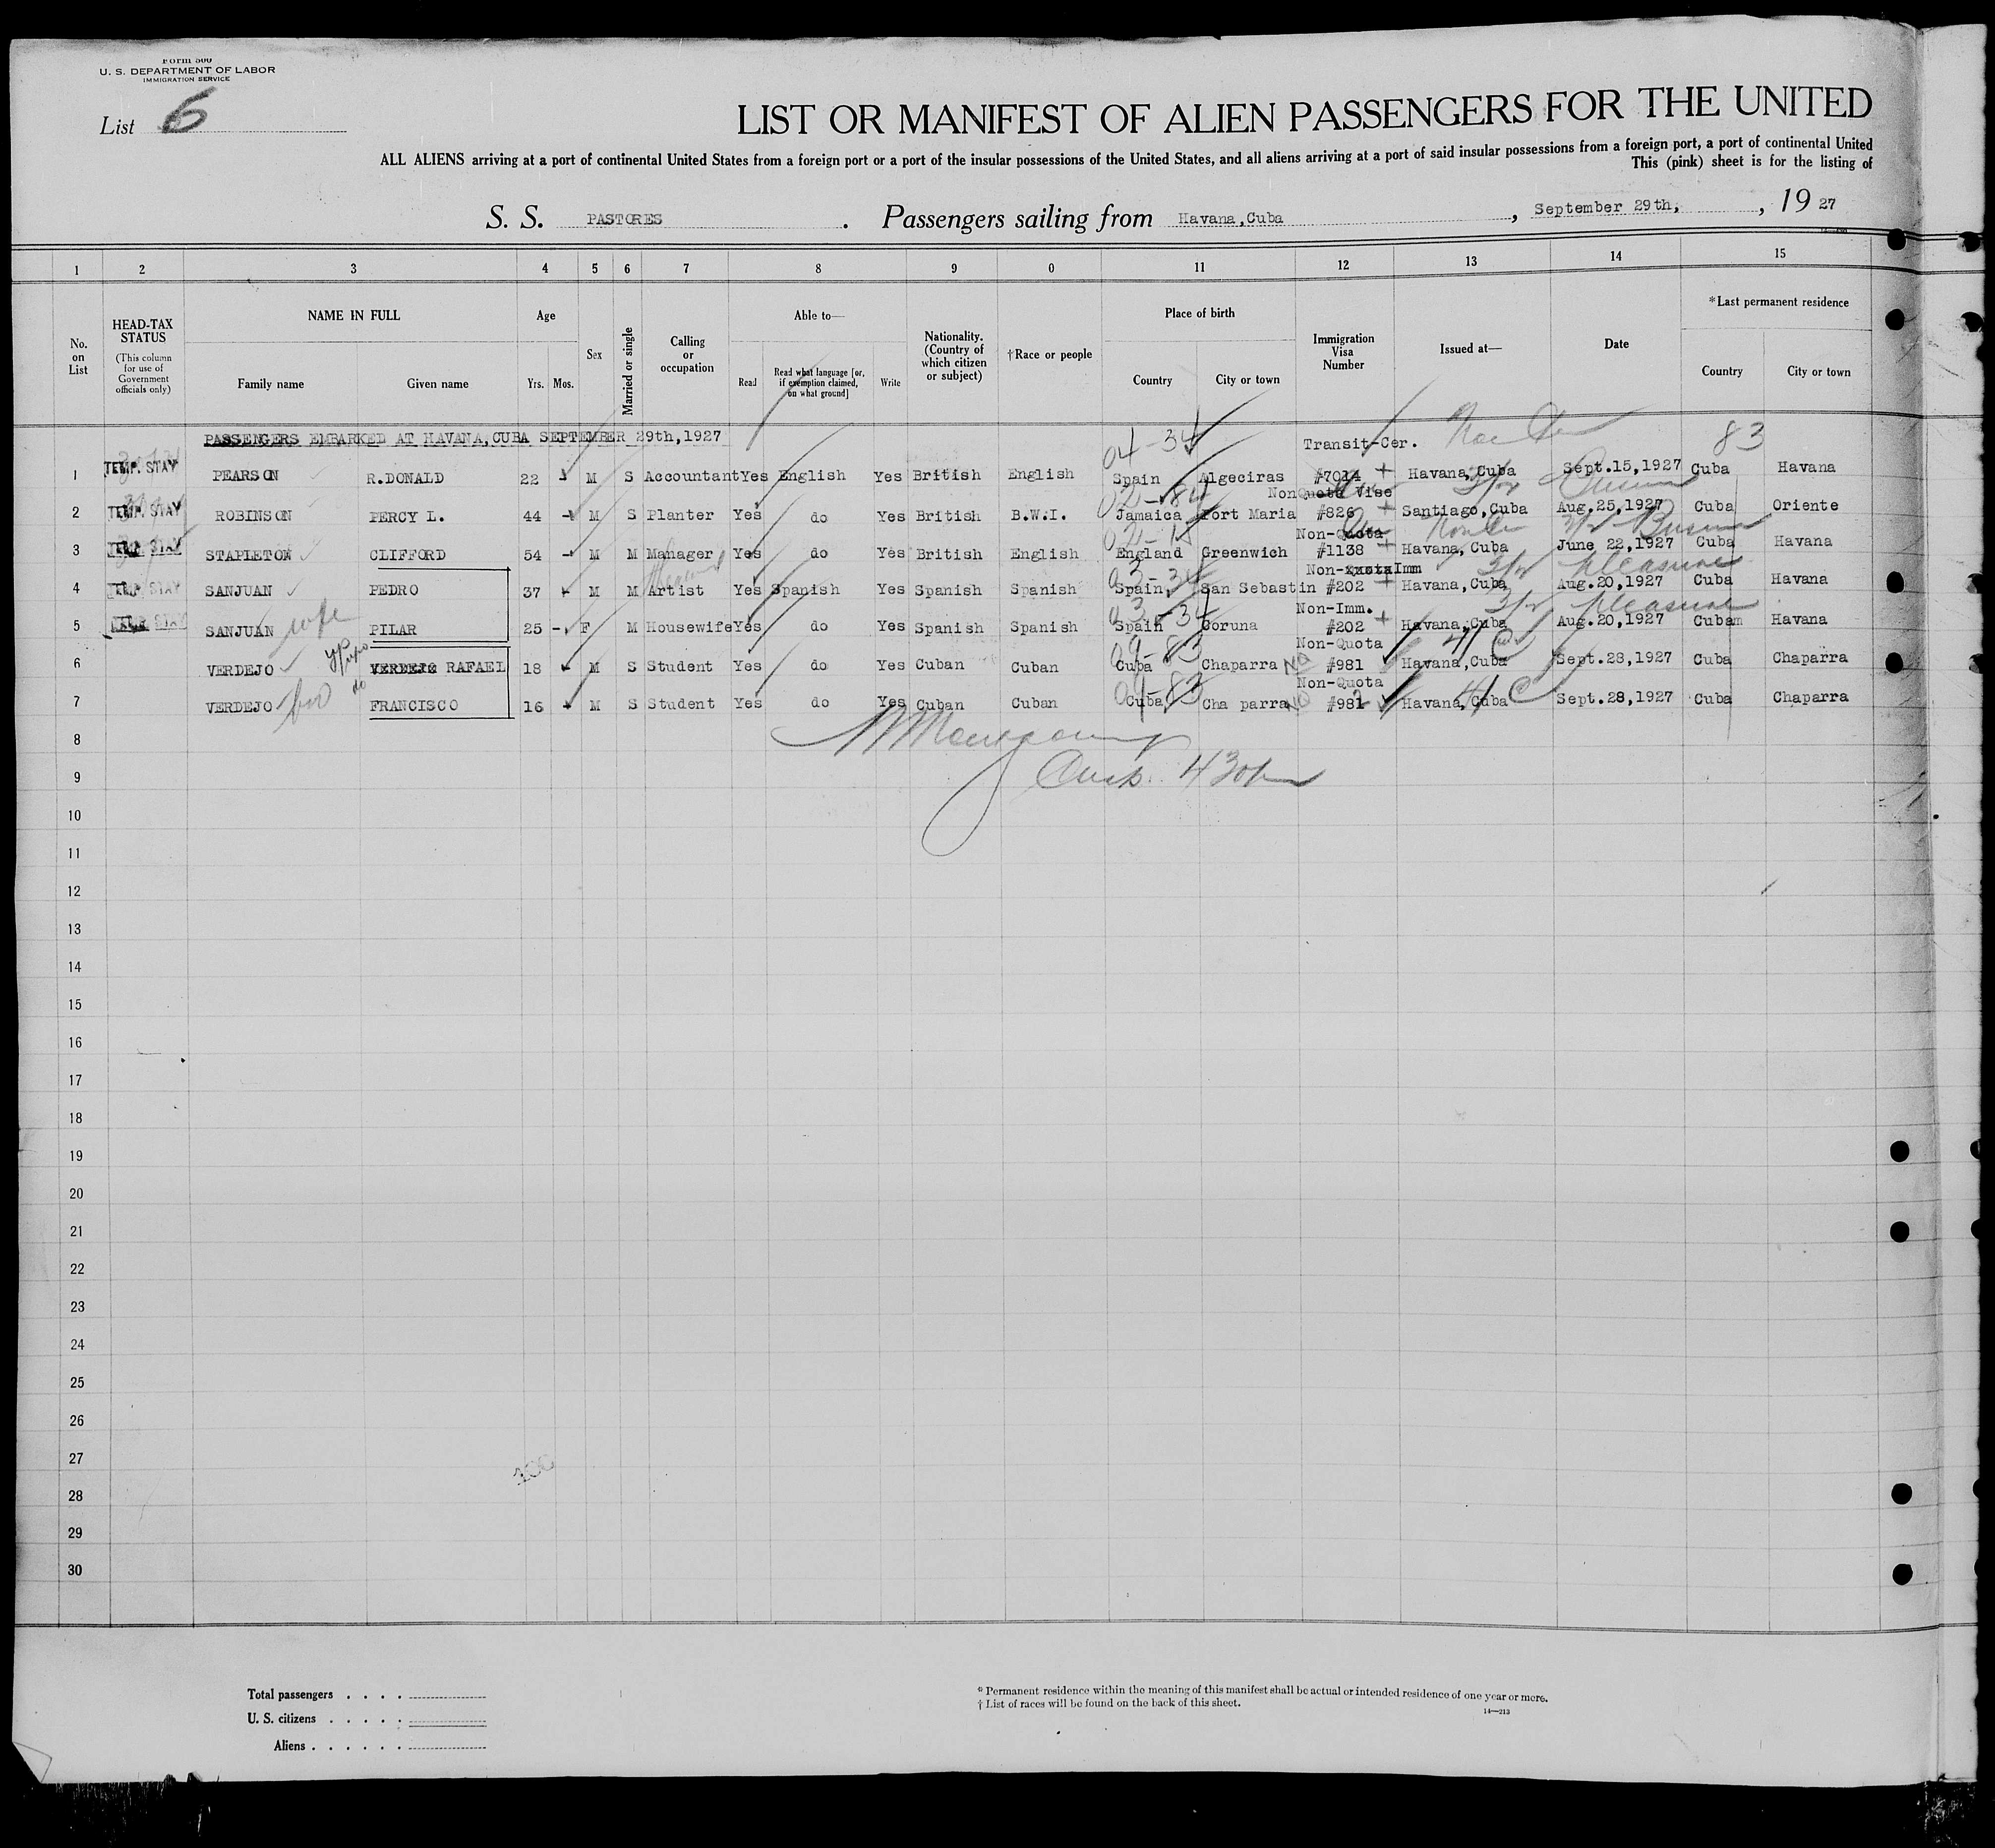 Form 500
U. S. DEPARTMENT OF LABOR
IMMIGRATION SERVICE
List 6
LIST OR MANIFEST OF ALIEN PASSENGERS FOR THE UNITED
ALL ALIENS arriving at a port of continental United States from a foreign port or a port of the insular possessions of the United States, and all aliens arriving at a port of said insular possessions from a foreign port, a port of continental United
This (pink) sheet is for the listing of
S. S. PASTORES . Passengers sailing from Havana,Cuba , September 29th, , 19 27
1 2 3 4 5 6 7 8 9 0 11 12 13 14 15
No. on List
HEAD-TAX STATUS (This column for use of Government officials only)
NAME IN FULL
Family name Given name
Age
Yrs. Mos.
Sex
Married or single
Calling or occupation
Able to—
Read
Read what language [or, if exemption claimed, on what ground]
Write
Nationality. (Country of which citizen or subject)
†Race or people
Place of birth
Country City or town
Immigration Visa Number
Issued at—
Date
*Last permanent residence
Country City or town
PASSENGERS EMBARKED AT HAVANA,CUBA SEPTEMBER 29th,1927
04-34 Transit-Cer. 83
1 TEMP. STAY PEARSON R.DONALD 22 - M S Accountant Yes English Yes British English Spain Algeciras #7014 + Havana,Cuba Sept.15,1927 Cuba Havana
NonQuota Vise
2 TEMP. STAY ROBINSON PERCY L. 44 - M S Planter Yes do Yes British B.W.I. Jamaica Port Maria #826 + Santiago,Cuba Aug.25,1927 Cuba Oriente
Non-Quota
3 TEMP STAY STAPLETON CLIFFORD 54 - M M Manager Yes do Yes British English England Greenwich #1138 + Havana,Cuba June 22,1927 Cuba Havana
03-34 Non-quotaImm pleasure
4 TEMP STAY SANJUAN PEDRO 37 - M M Artist Yes Spanish Yes Spanish Spanish Spain, San Sebastin #202 + Havana,Cuba Aug.20,1927 Cuba Havana
wife 03-34 Non-Imm. pleasure
5 STAY SANJUAN PILAR 25 - F M Housewife Yes do Yes Spanish Spanish Spain Coruna #202 + Havana,Cuba Aug.20,1927 Cubam Havana
09-83 Non-Quota
6 VERDEJO VERDEJO RAFAEL 18 - M S Student Yes do Yes Cuban Cuban Cuba Chaparra NQ #981 Havana,Cuba Sept.28,1927 Cuba Chaparra
Non-Quota
7 VERDEJO bro do FRANCISCO 16 - M S Student Yes do Yes Cuban Cuban Cuba Cha parra NQ #982 Havana,Cuba Sept.28,1927 Cuba Chaparra
8
9
10
11
12
13
14
15
16
17
18
19
20
21
22
23
24
25
26
27
28
29
30
Total passengers . . . .
U. S. citizens . . . . .
Aliens . . . . . .
* Permanent residence within the meaning of this manifest shall be actual or intended residence of one year or more.
† List of races will be found on the back of this sheet.
14—213